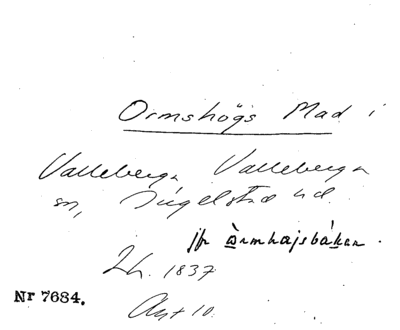 Ormshögs Mad i
Valleberga Valleberga
sn, Ingelstad hd.
jfr òrmhajsbákan.
Lh. 1837
Nr 7684.
Akt 10.